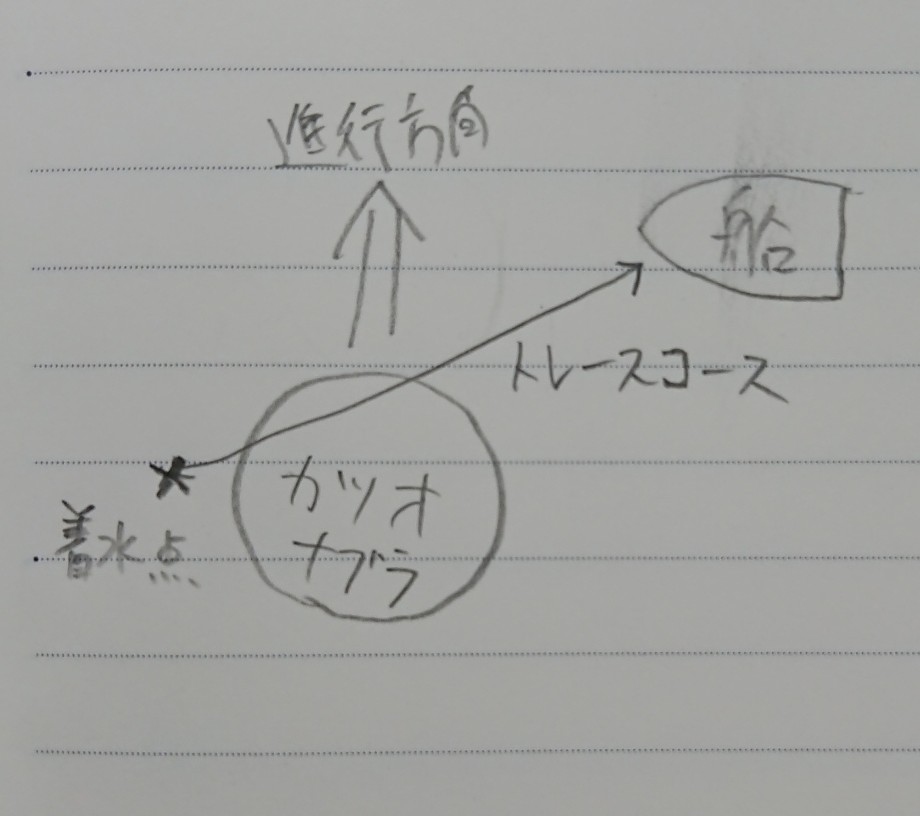 進行方向
船
トレースコース
カツオ
ナブラ
着水点